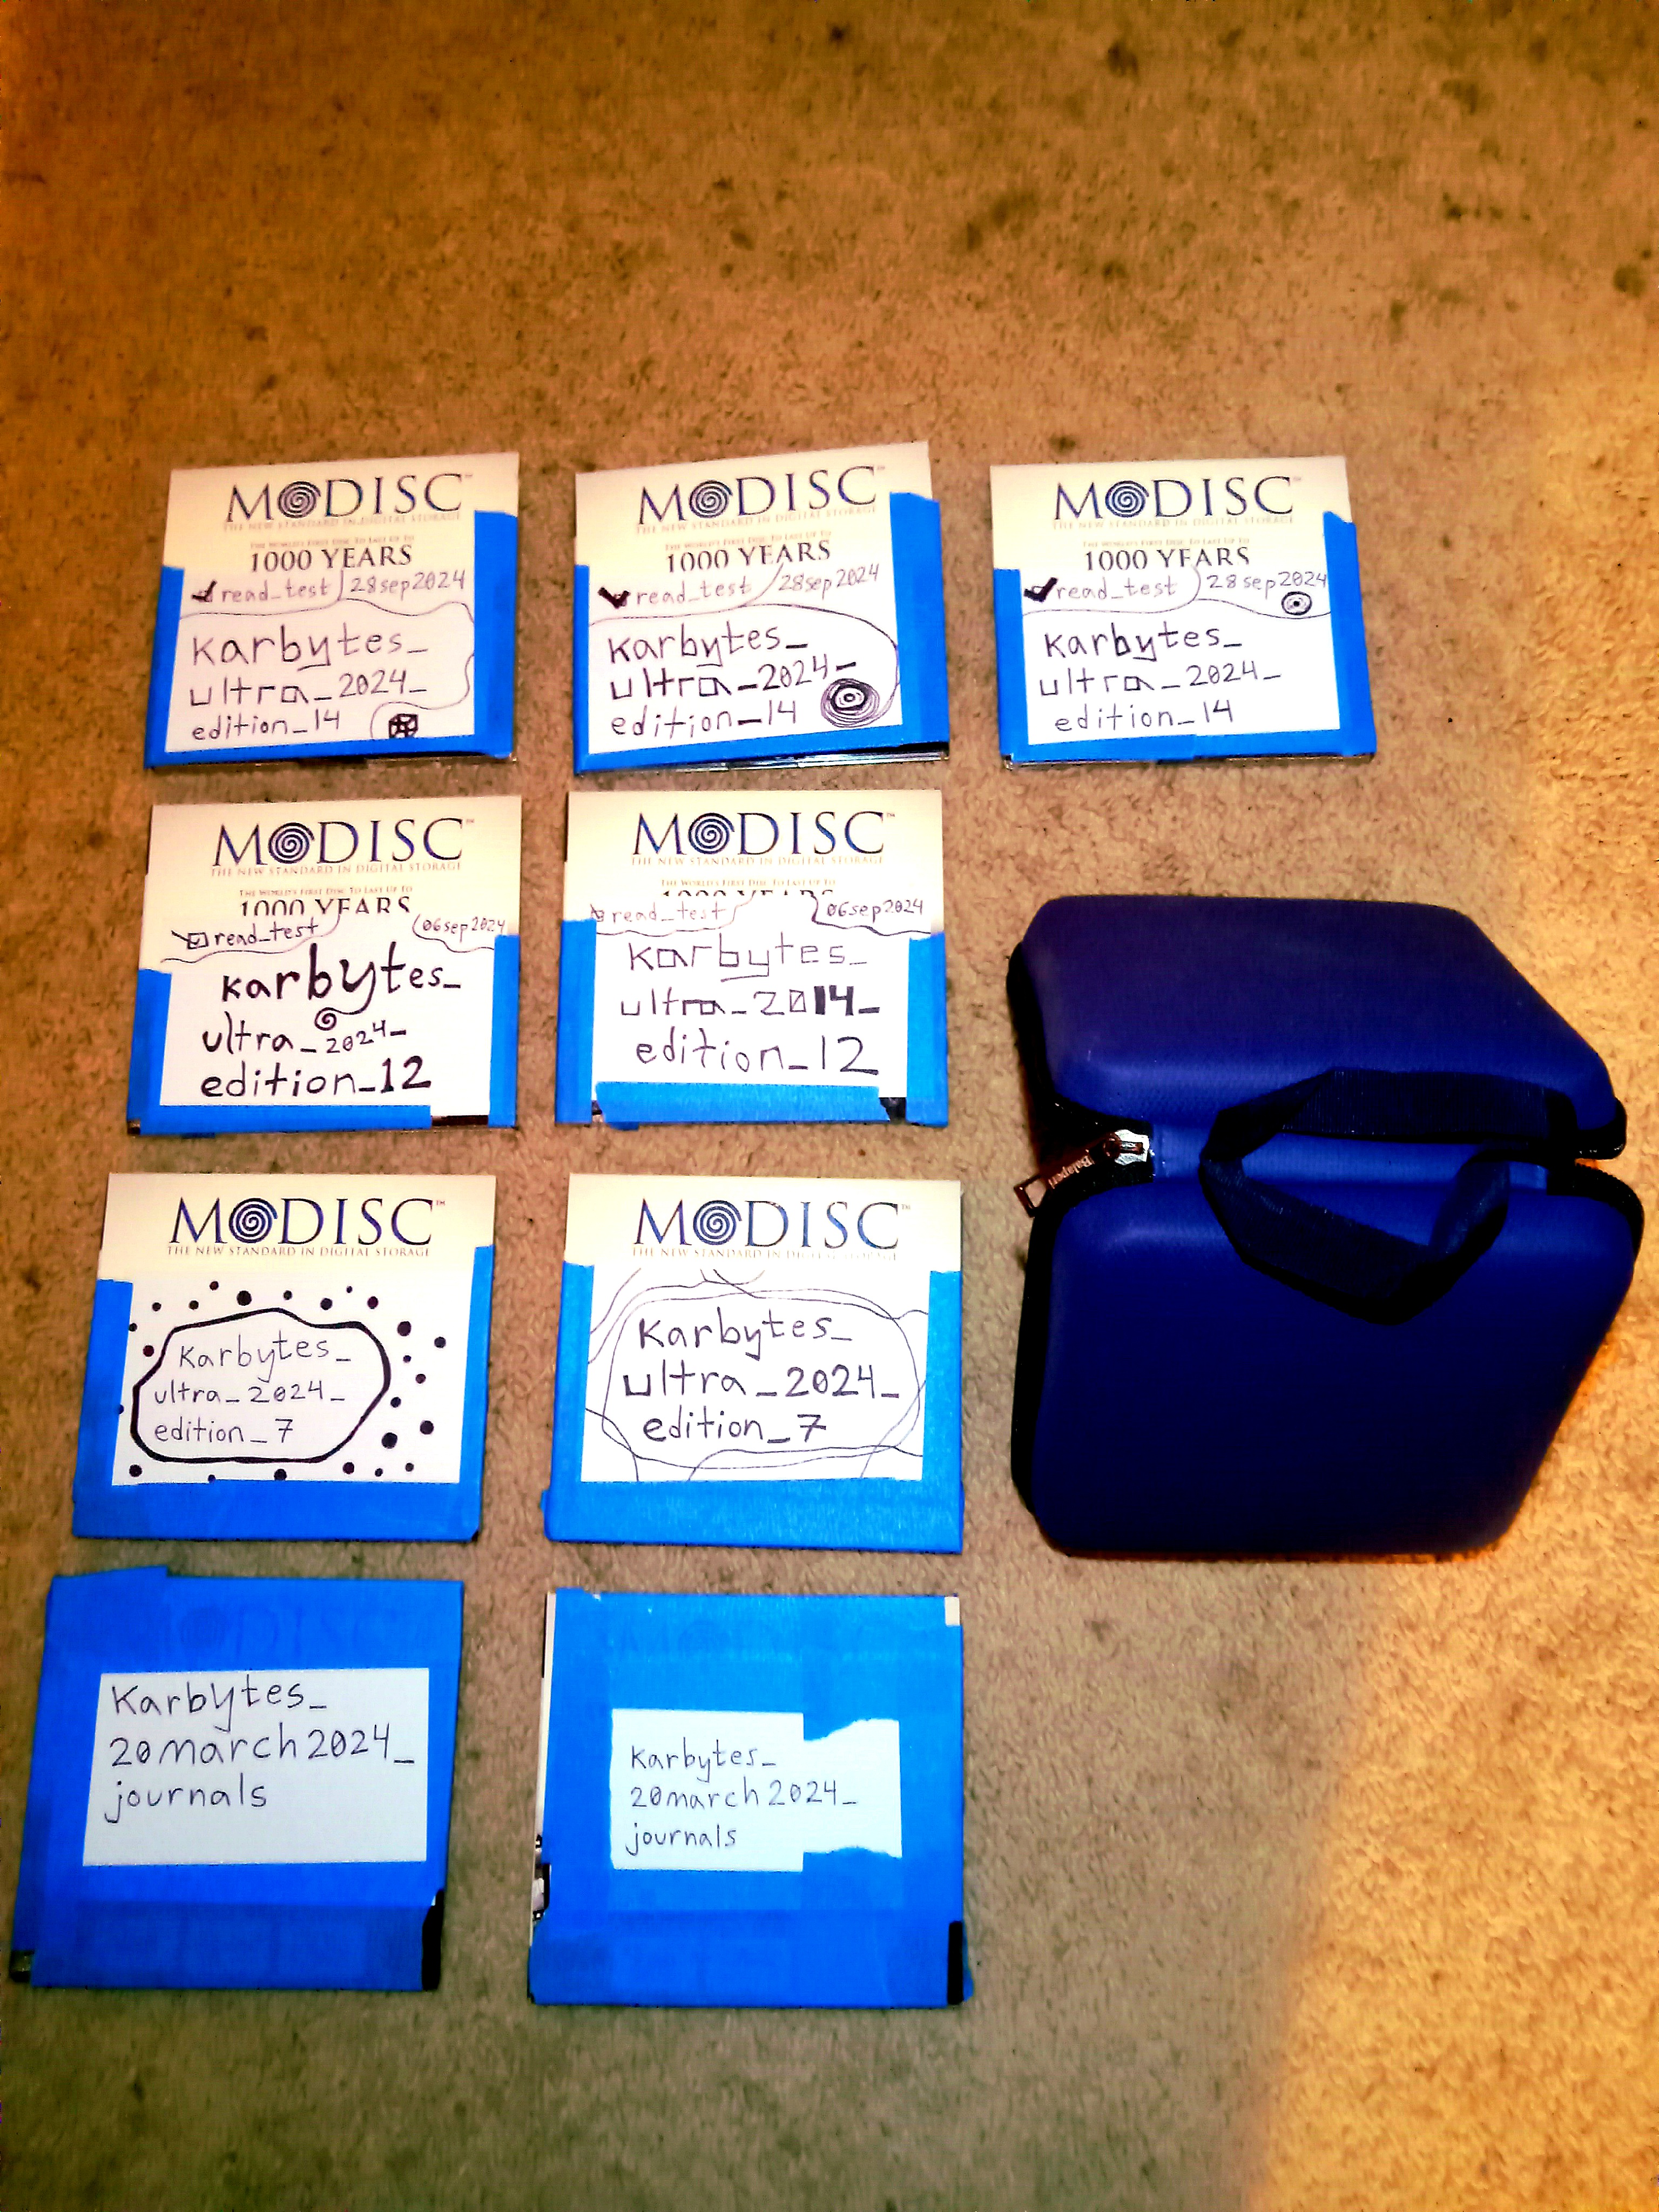 MODISC™
THE NEW STANDARD IN DIGITAL STORAGE
THE WORLD'S FIRST DISC TO LAST UP TO
1000 YEARS
read_test 28sep2024
karbytes_
ultra_2024_
edition_14
MODISC™
THE NEW STANDARD IN DIGITAL STORAGE
THE WORLD'S FIRST DISC TO LAST UP TO
1000 YEARS
read_test 28sep2024
karbytes_
ultra_2024_
edition_14
MODISC™
THE NEW STANDARD IN DIGITAL STORAGE
THE WORLD'S FIRST DISC TO LAST UP TO
1000 YEARS
read_test 28sep2024
karbytes_
ultra_2024_
edition_14
MODISC™
THE NEW STANDARD IN DIGITAL STORAGE
THE WORLD'S FIRST DISC TO LAST UP TO
1000 YEARS
read_test 06sep2024
karbytes_
ultra_2024_
edition_12
MODISC™
THE NEW STANDARD IN DIGITAL STORAGE
THE WORLD'S FIRST DISC TO LAST UP TO
1000 YEARS
read_test 06sep2024
karbytes_
ultra_2014_
edition_12
MODISC™
THE NEW STANDARD IN DIGITAL STORAGE
karbytes_
ultra_2024_
edition_7
MODISC™
THE NEW STANDARD IN DIGITAL STORAGE
karbytes_
ultra_2024_
edition_7
MODISC
karbytes_
20march2024_
journals
karbytes_
20march2024_
journals